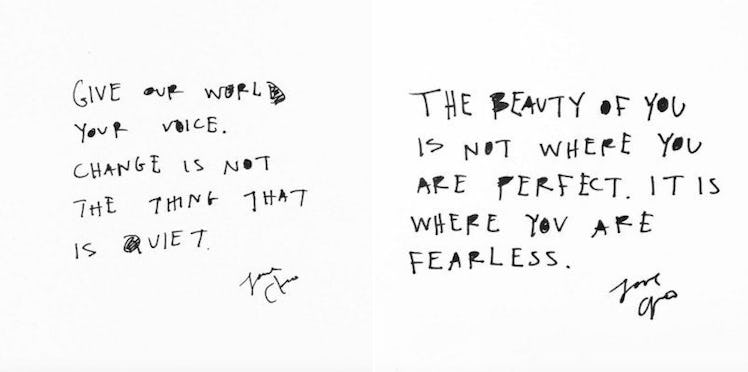 GIVE OUR WORLD
YOUR VOICE.
CHANGE IS NOT
THE THING THAT
IS QUIET.
THE BEAUTY OF YOU
IS NOT WHERE YOU
ARE PERFECT. IT IS
WHERE YOU ARE
FEARLESS.
love